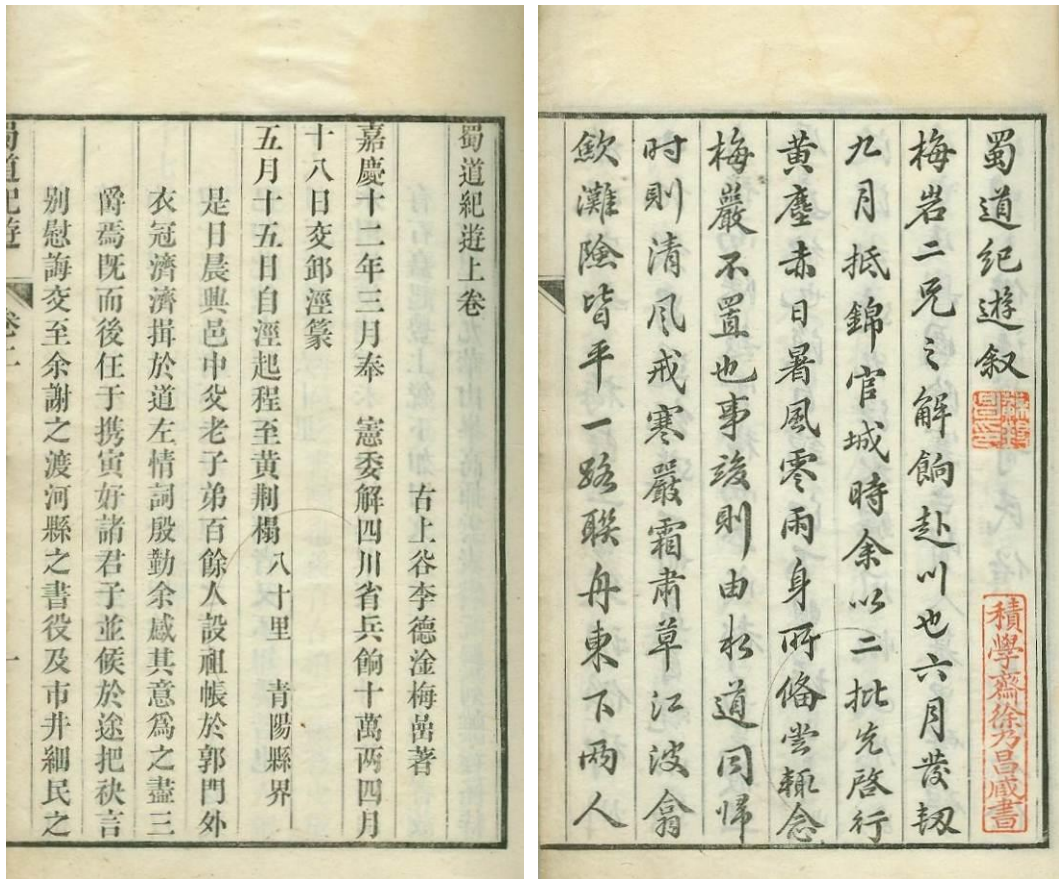 蜀道紀遊叙
積學齋徐乃昌藏書
梅岩二兄之解餉赴川也六月發軔
九月抵錦官城時余以二批先啓行
黄塵赤日暑風零雨身所俻嘗輒念
梅嚴不置也事竣則由水道同歸
时則清風戒寒嚴霜肃草江波翕
歛灘險皆平一路聯舟東下两人
蜀道紀遊上卷
古上谷李德淦梅嵒著
嘉慶十二年三月奉 憲委解四川省兵餉十萬两四月
十八日交卸涇篆
五月十五日自涇起程至黄荆榻 八十里 青陽縣界
是日晨興邑中父老子弟百餘人設祖帳於郭門外
衣冠濟濟揖於道左情詞殷勤余感其意爲之盡三
爵焉既而後任于携寅好諸君子並候於途把袂言
别慰誨交至余謝之渡河縣之書役及市井細民之
蜀道紀遊 卷上 一